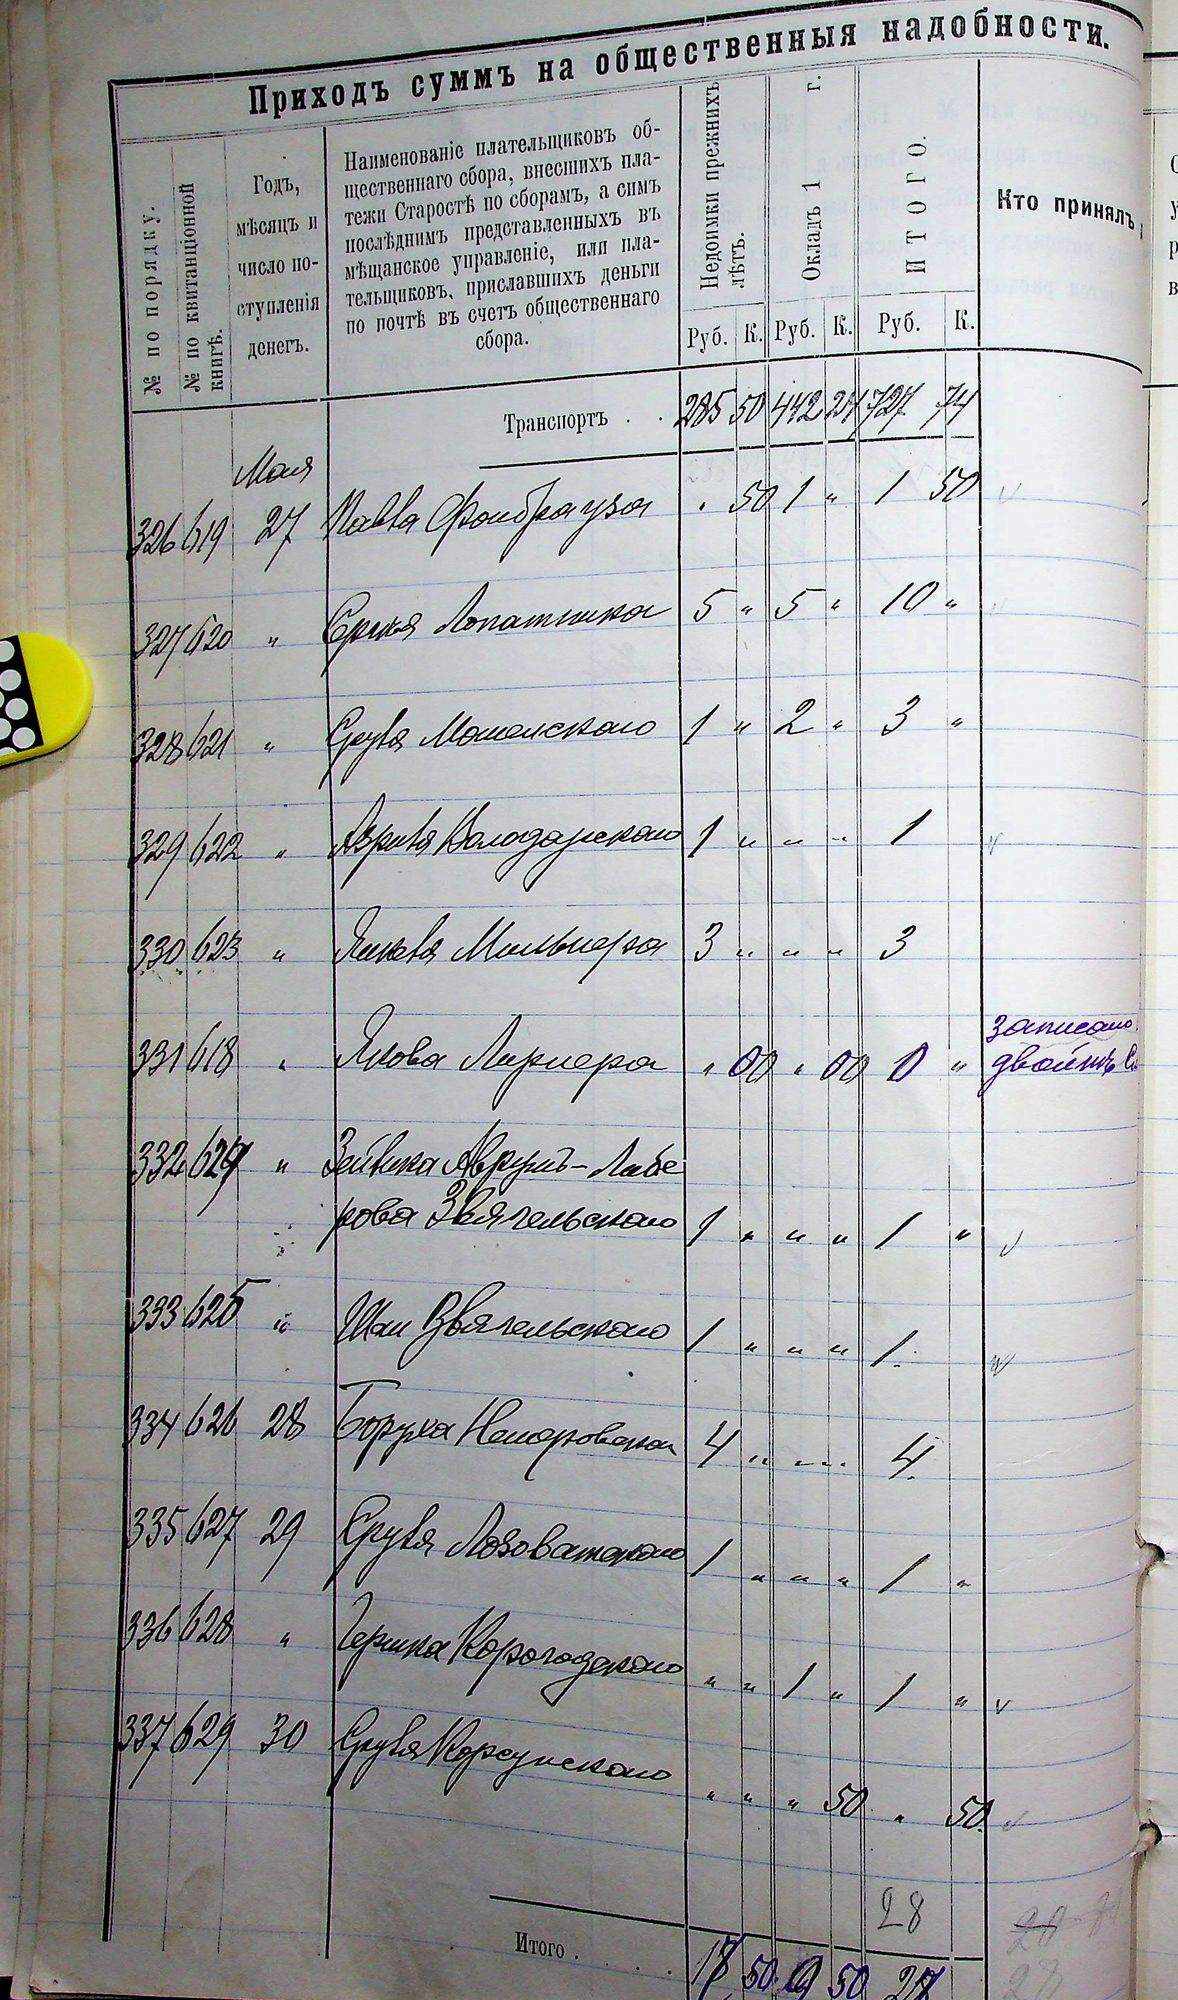 Приходъ суммъ на общественныя надобности.
№ по порядку.
№ по квитанціонной
книгѣ.
Годъ,
мѣсяцъ и
число по-
ступленія
денегъ.
Наименованіе плательщиковъ об-
щественнаго сбора, внесшихъ пла-
тежи Старостѣ по сборамъ, а симъ
послѣднимъ представленныхъ въ
мѣщанское управленіе, или пла-
тельщиковъ, приславшихъ деньги
по почтѣ въ счетъ общественнаго
сбора.
Недоимки прежнихъ
лѣтъ.
Окладъ 1 г.
ИТОГО.
Кто принялъ
Руб. К. Руб. К. Руб. К.
Транспортъ . . 285 50 442 24 727 74
Мая
326 619 27 " 50 1 " 1 50
327 620 " Лопатника 5 " 5 " 10 "
328 621 " Сруля 1 " 2 " 3 "
329 622 " Володарского 1 " " " 1
330 623 " Янкеля Мильнера 3 " " " 3
331 618 " Якова Лернера " 00 " 00 0 " записано
двойнѣ
332 624 " Зейвика Аврумъ-Либе
рова Звягельского 1 " " " 1 "
333 625 " Шаи Звягельского 1 " " " 1.
334 626 28 Боруха 4 " " " 4.
335 627 29 Сруля Лозоватского 1 " " " 1 "
336 628 " Гершка Корогодского " " 1 " 1 "
337 629 30 Сруля Корсунского " " " 50 " 50.
28
Итого . . . . 50 50